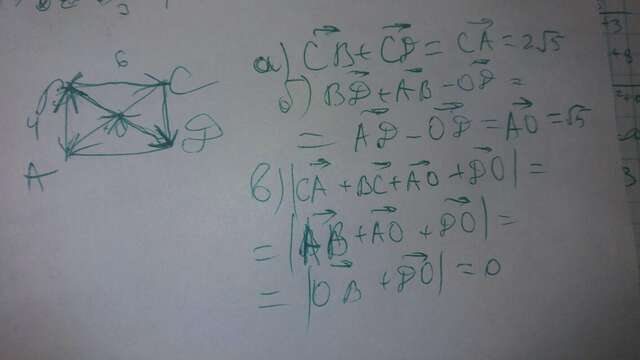 6
B
C
4
O
A
D
а) CB + CD = CA = 2√5
б) BD + AB - OD =
= AD - OD = AO = √5
в) |CA + BC + AO + DO| =
= |AB + AO + DO| =
= |OB + DO| = 0